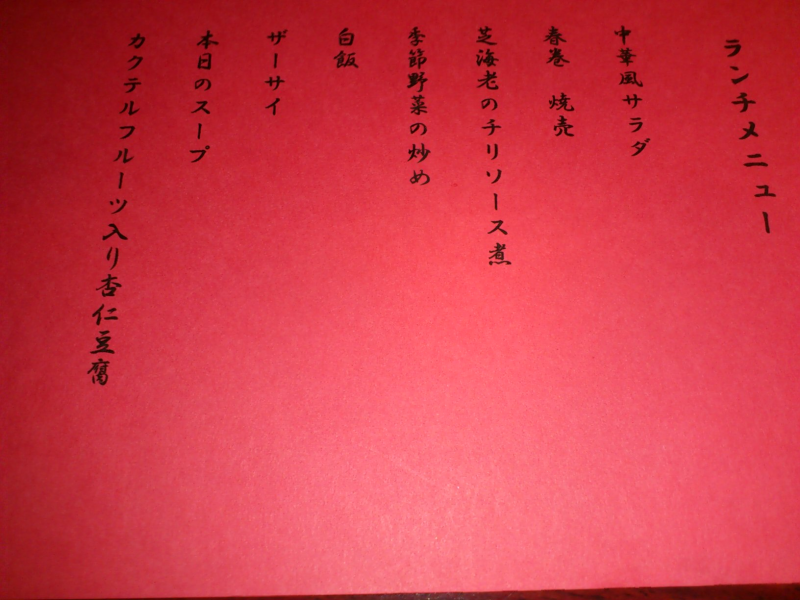 ランチメニュー
中華風サラダ
春巻　焼売
芝海老のチリソース煮
季節野菜の炒め
白飯
ザーサイ
本日のスープ
カクテルフルーツ入り杏仁豆腐